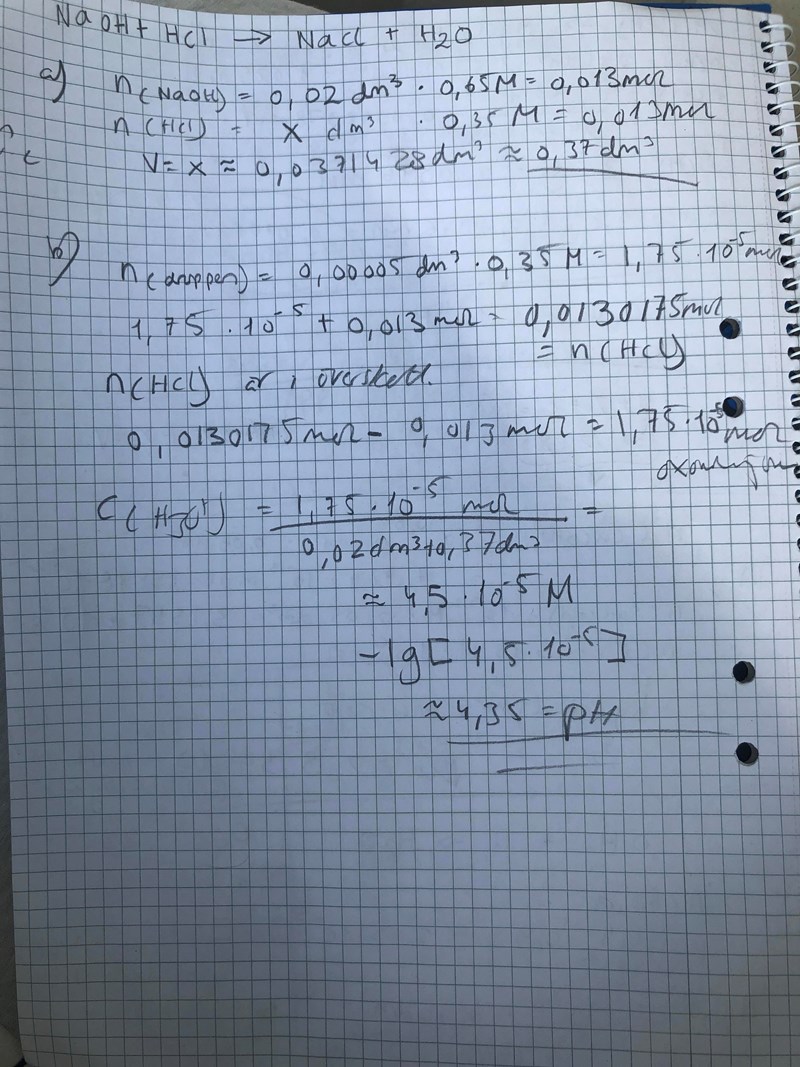 NaOH + HCl → NaCl + H2O
a) n(NaOH) = 0,02 dm³ · 0,65M = 0,013mol
n(HCl) = x dm³ · 0,35M = 0,013mol
V = x ≈ 0,0371428dm³ ≈ 0,37dm³
b) n(droppen) = 0,00005 dm³ · 0,35M = 1,75 · 10⁻⁵ mol
1,75 · 10⁻⁵ + 0,013mol = 0,0130175mol
= n(HCl)
n(HCl) är i överskott.
0,0130175mol - 0,013mol = 1,75 · 10⁻⁵ mol
C(H3O⁺) = 1,75 · 10⁻⁵ mol =
0,02dm³+0,37dm³
≈ 4,5 · 10⁻⁵ M
-lg[4,5 · 10⁻⁵]
≈ 4,35 = pH